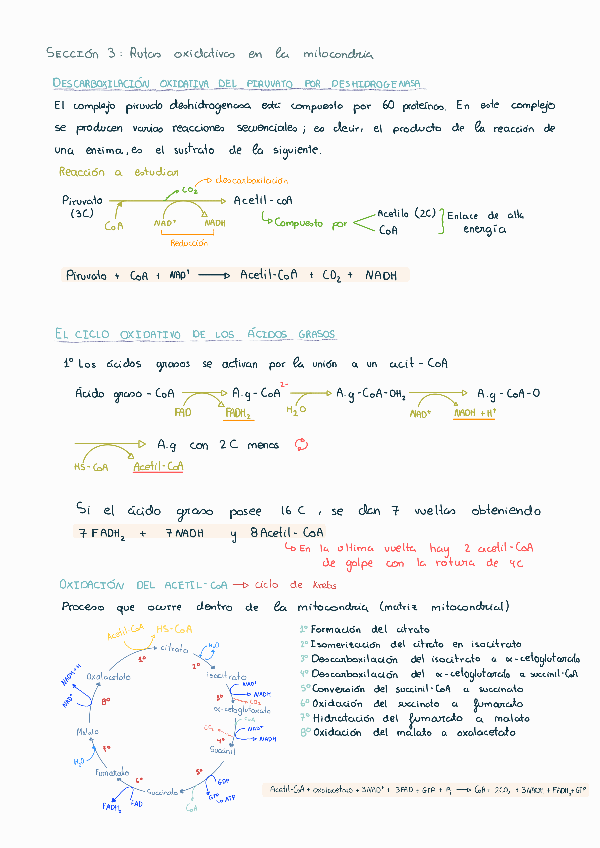 SECCIÓN 3: Rutas oxidativas en la mitocondria
DESCARBOXILACIÓN OXIDATIVA DEL PIRUVATO POR DESHIDROGENASA
El complejo piruvato deshidrogenasa está compuesto por 60 proteínas. En este complejo
se producen varias reacciones secuenciales; es decir, el producto de la reacción de
una enzima, es el sustrato de la siguiente.
Reacción a estudiar
CO₂ → descarboxilación
Piruvato (3C) → Acetil-coA
CoA NAD⁺ NADH
Reducción
Compuesto por
Acetilo (2C)
CoA
Enlace de alta
energía
Piruvato + CoA + NAD⁺ → Acetil-CoA + CO₂ + NADH
EL CICLO OXIDATIVO DE LOS ÁCIDOS GRASOS
1º Los ácidos grasos se activan por la unión a un acil-CoA
Ácido graso-CoA → A.g-CoA²⁻ → A.g-CoA-OH₂ → A.g-CoA-O
FAD FADH₂ H₂O NAD⁺ NADH + H⁺
→ A.g con 2C menos
HS-CoA Acetil-CoA
Si el ácido graso posee 16C, se dan 7 vueltas obteniendo
7 FADH₂ + 7 NADH y 8 Acetil-CoA
En la ultima vuelta hay 2 acetil-CoA
de golpe con la rotura de 4C
OXIDACIÓN DEL ACETIL-CoA → ciclo de Krebs
Proceso que ocurre dentro de la mitocondria (matriz mitocondrial)
Acetil-CoA HS-CoA
citrato
H₂O
1º
2º
isocitrato
NAD⁺
NADH
3º
CO₂
α-cetoglutarato
CoA
CO₂
NAD⁺
4º
NADH
Succinil
5º
GDP
GTP
ATP
CoA
Succinato
6º
FAD
FADH₂
Fumarato
H₂O
7º
Malato
8º
NAD⁺
NADH+H
Oxalacetato
1º Formación del citrato
2º Isomerización del citrato en isocitrato
3º Descarboxilación del isocitrato a α-cetoglutarato
4º Descarboxilación del α-cetoglutarato a succinil-CoA
5º Conversión del succinil-CoA a succinato
6º Oxidación del succinato a fumarato
7º Hidratación del fumarato a malato
8º Oxidación del malato a oxalacetato
Acetil-CoA + oxalacetato + 3NAD⁺ +